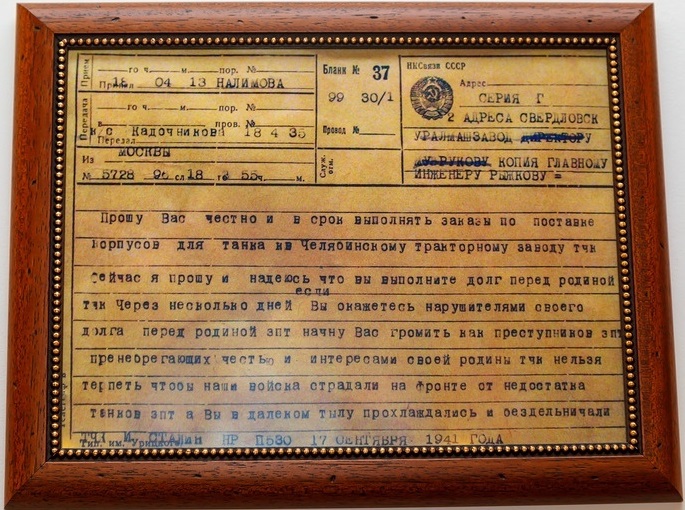 го ч. м. пор. №
Принял 18 04 13 НАЛИМОВА
го ч. м. пор. №
в пров. №
к/с Кадочникова 18 4 35
Передал
Из МОСКВЫ
№ 5728 96 сл 18 го 55 ч. м.
Прием
Передача
Бланк № 37
99 30/1
Провод №
Служ. отм.
НКСвязи СССР
Адрес
СЕРИЯ Г
2 АДРЕСА СВЕРДЛОВСК
УРАЛМАШЗАВОД ДИРЕКТОРУ
МУЗРУКОВУ КОПИЯ ГЛАВНОМУ
ИНЖЕНЕРУ РЫЖКОВУ =
Прошу Вас честно и в срок выполнять заказы по поставке
корпусов для танка кв Челябинскому тракторному заводу тчк
Сейчас я прошу и надеюсь что вы выполните долг перед родиной
если
тчк Через несколько дней Вы окажетесь нарушителями своего
долга перед родиной зпт начну Вас громить как преступников зпт
пренебрегающих честью и интересами своей родины тчк нельзя
терпеть чтобы наши войска страдали на фронте от недостатка
танков зпт а Вы в далеком тылу прохлаждались и бездельничали
тчк И СТАЛИН НР П530 17 СЕНТЯБРЯ 1941 ГОДА
Тип. им.